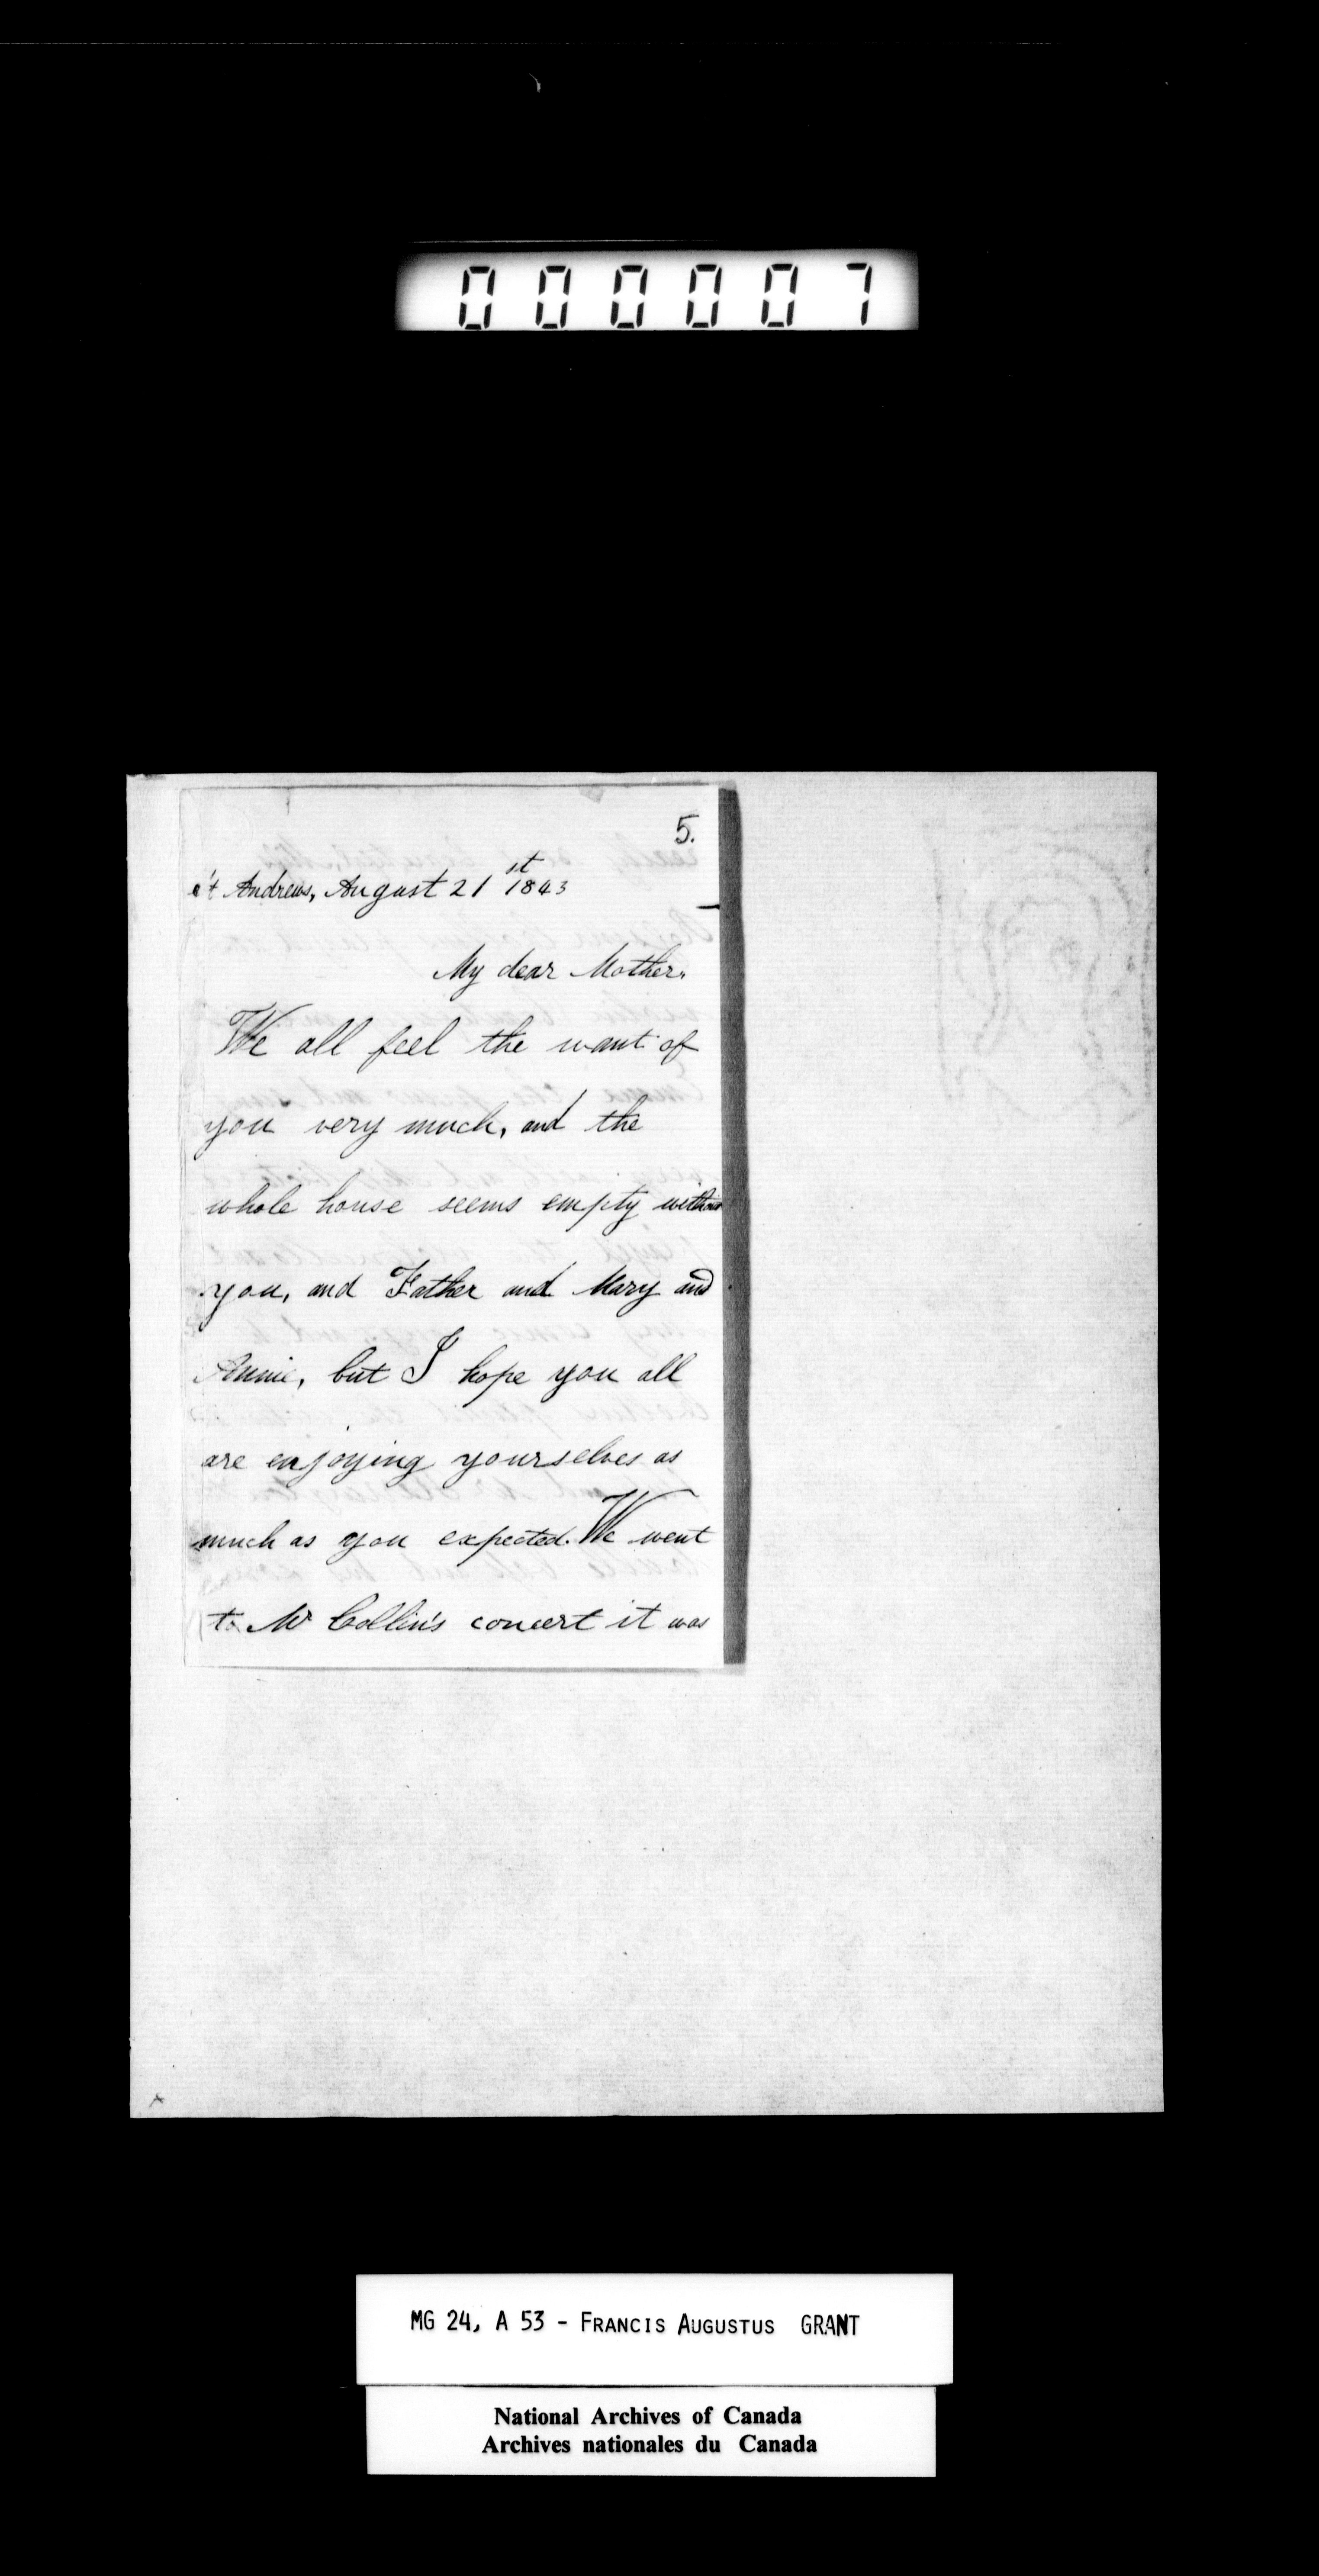 000007
5.
s't Andrews, August 21st 1843
My dear Mother.
We all feel the want of
you very much, and the
whole house seems empty without
you, and Father and Mary and
Annie, but I hope you all
are enjoying yourselves as
much as you expected. We went
to Mr Collin's concert it was
MG 24, A 53 - FRANCIS AUGUSTUS GRANT
National Archives of Canada
Archives nationales du Canada